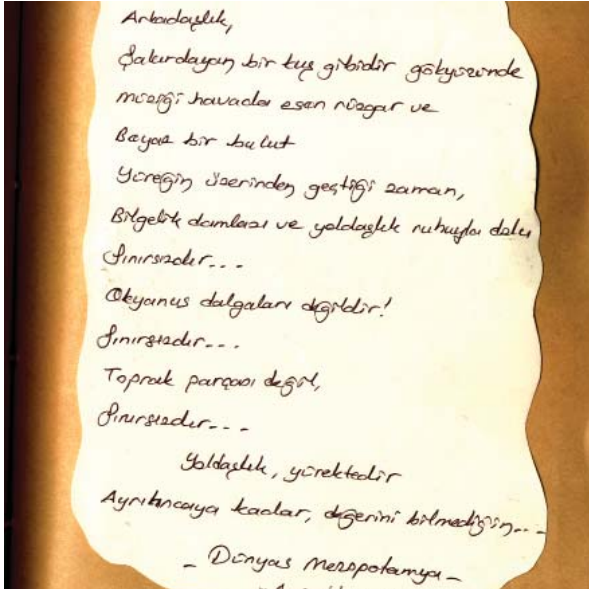 Arkadaşlık,
Şakırdayan bir kuş gibidir gökyüzünde
müziği havada esen rüzgar ve
Beyaz bir bulut
Yüreğin üzerinden geçtiği zaman,
Bilgelik damlası ve yoldaşlık ruhuyla dolu
Sınırsızdır...
Okyanus dalgaları değildir!
Sınırsızdır...
Toprak parçası değil,
Sınırsızdır...
Yoldaşlık, yürektedir
Ayrılıncaya kadar, değerini bilmediğin...
- Dünyas Mezopotamya -